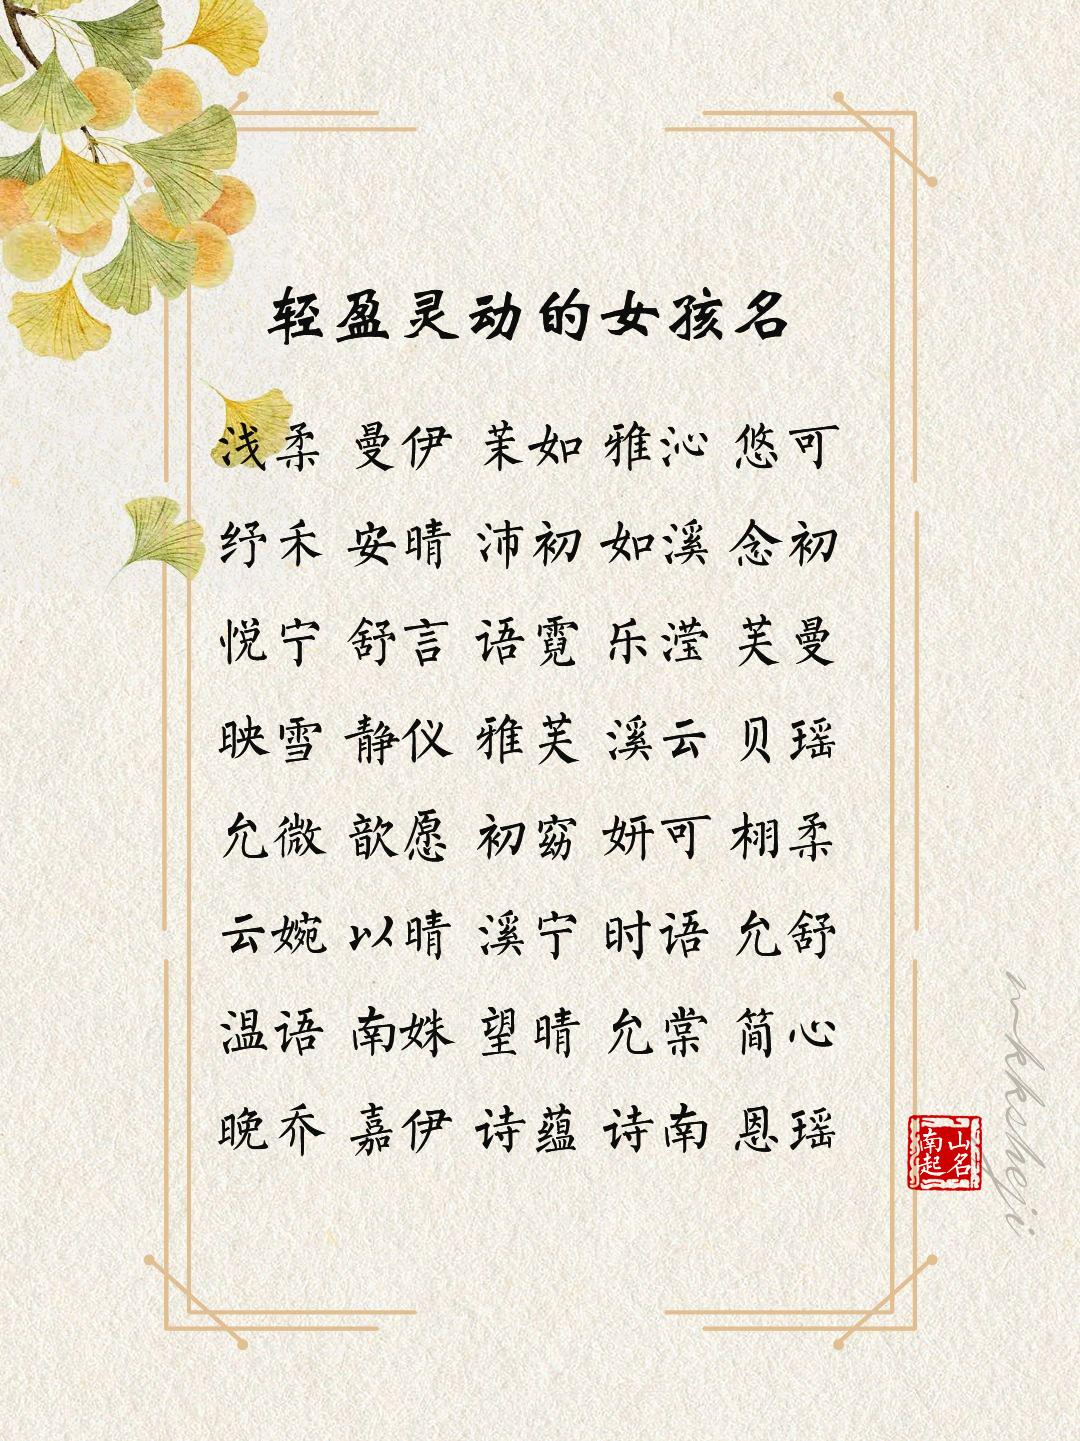 轻盈灵动的女孩名
浅柔 曼伊 茉如 雅沁 悠可
纾禾 安晴 沛初 如溪 念初
悦宁 舒言 语霓 乐滢 芙曼
映雪 静仪 雅芙 溪云 贝瑶
允微 歆愿 初窈 妍可 栩柔
云婉 以晴 溪宁 时语 允舒
温语 南姝 望晴 允棠 简心
晚乔 嘉伊 诗蕴 诗南 恩瑶
南山起名
mkksheji